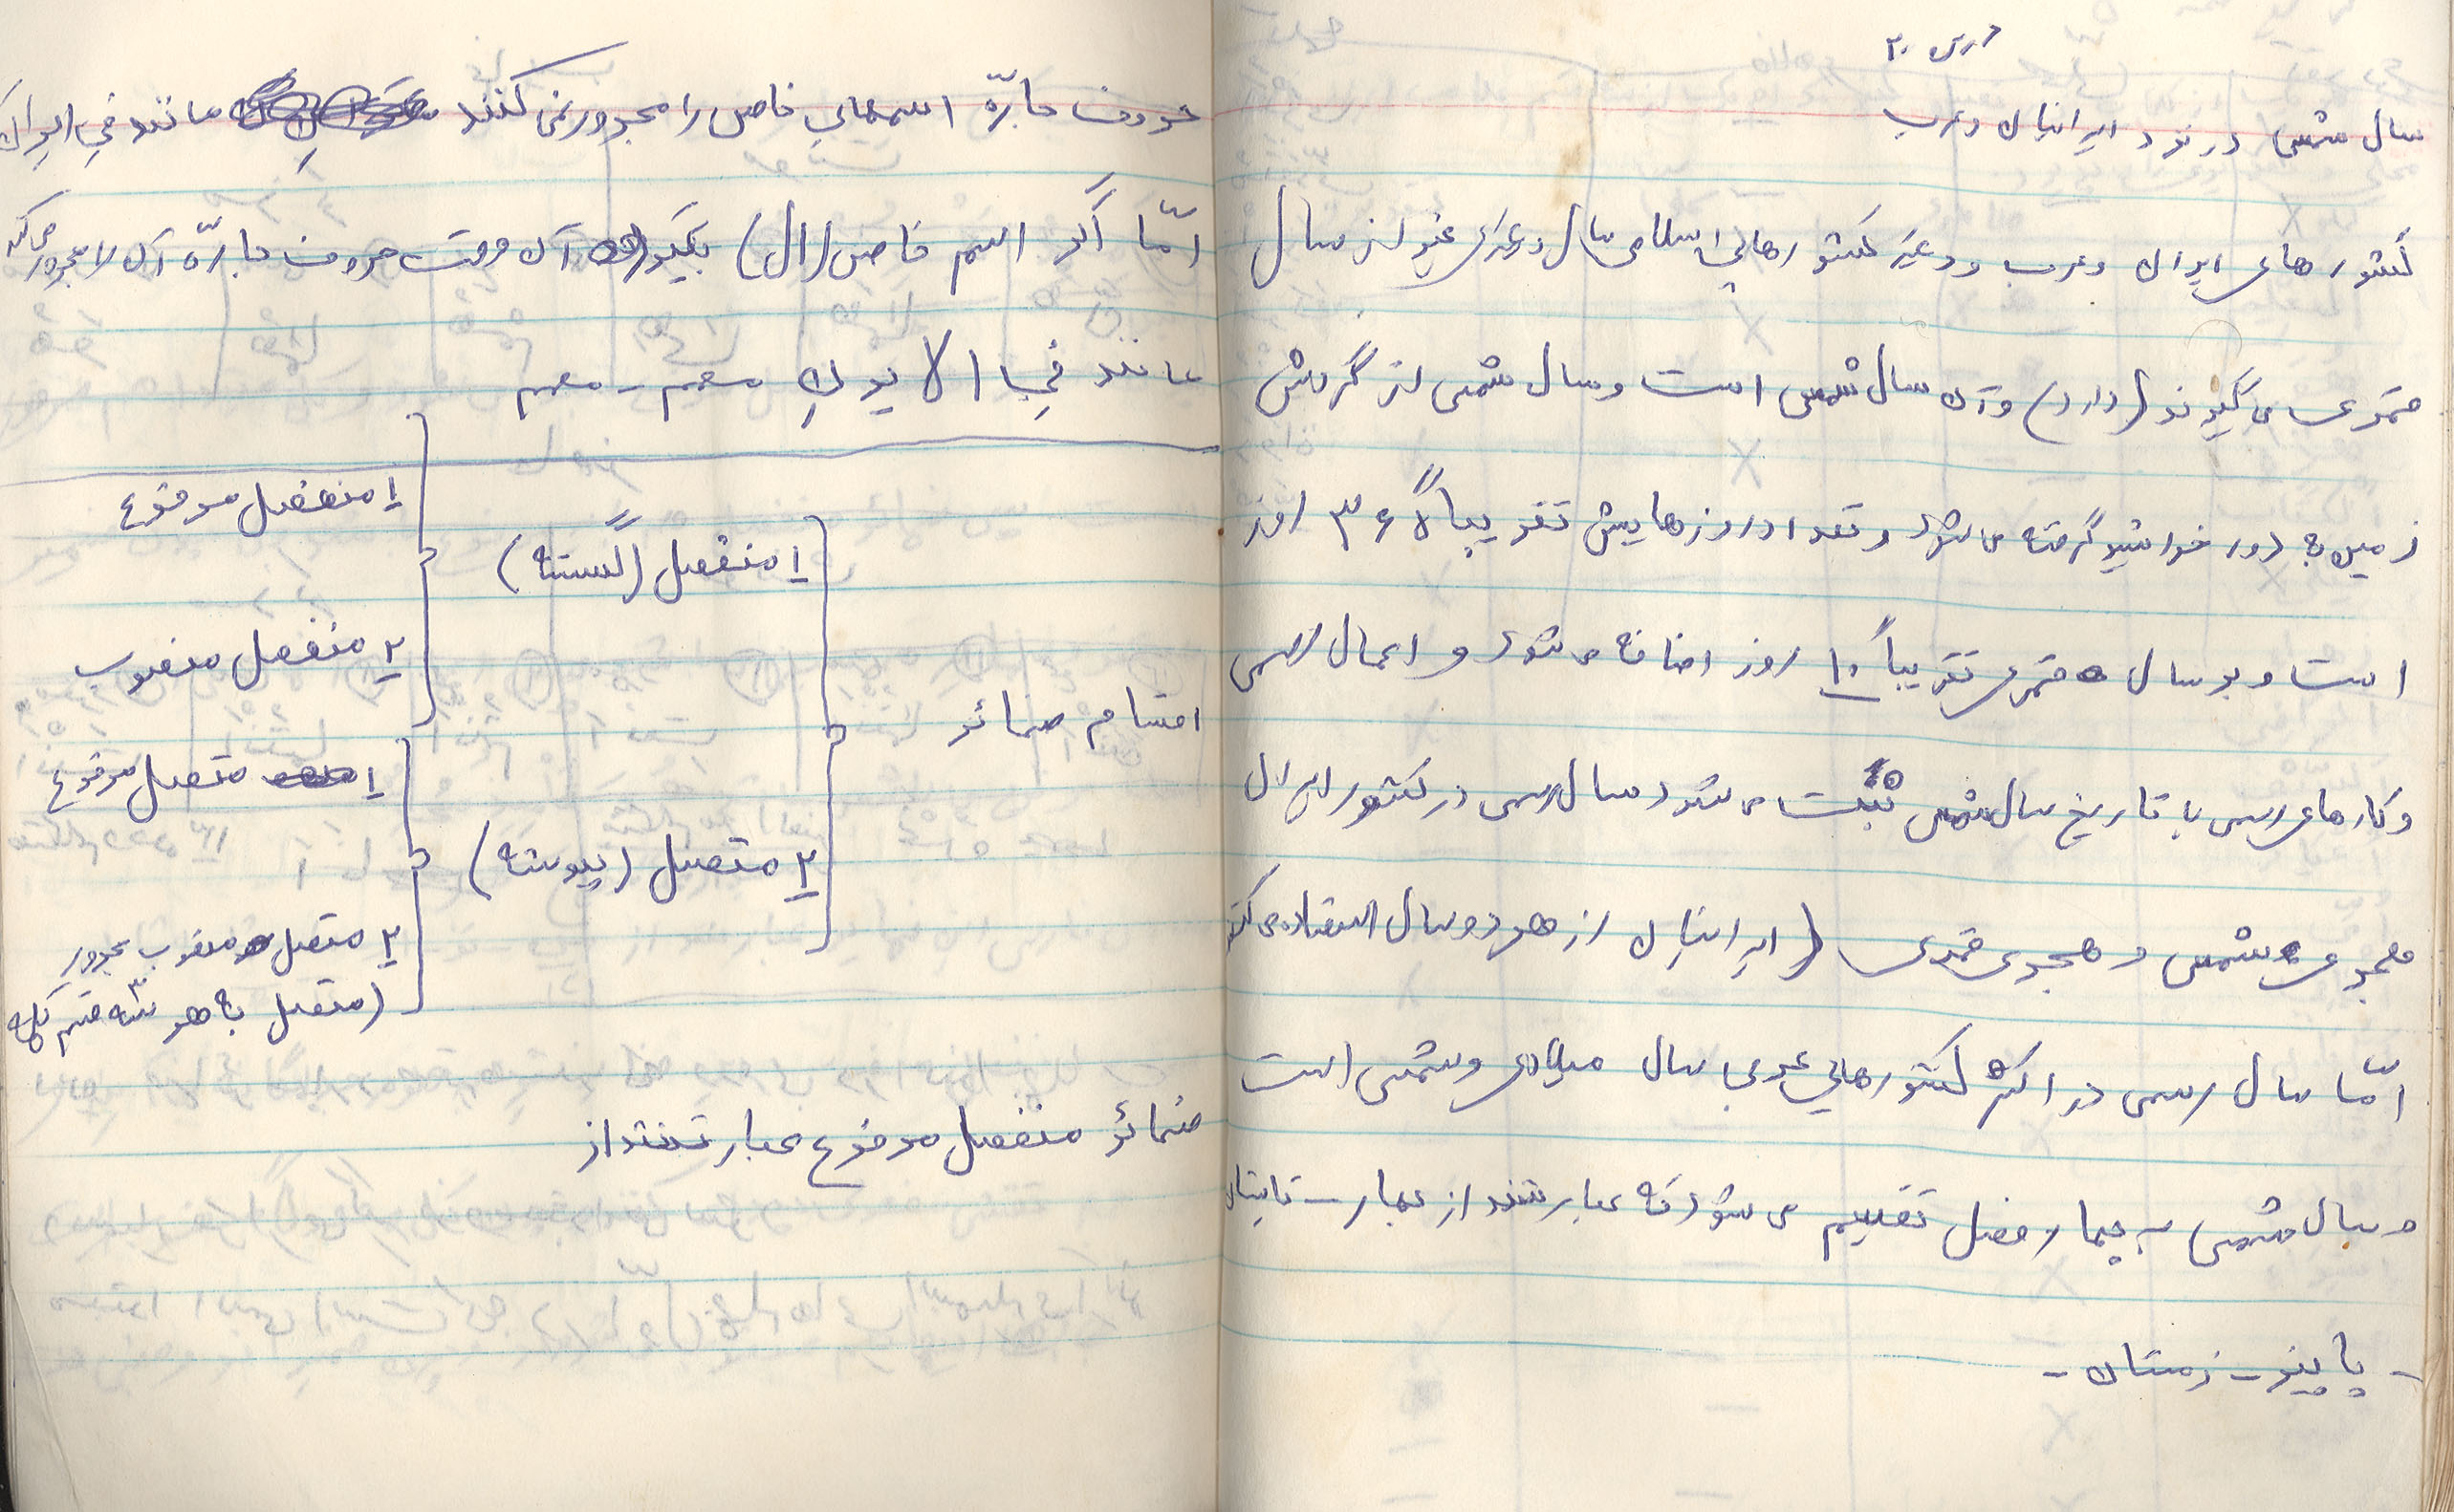 درس ۲۰
سال شمسی در نزد ایرانیان و عرب
کشورهای ایران و عرب و غیر کشورهای اسلامی سال دیگری غیر از سال
قمری می گیرند (دارد) و آن سال شمسی است و سال شمسی از گردش
زمین به دور خورشید گرفته می شود و تعداد روزهایش تقریباً ۳۶۵ روز
است و بر سال قمری تقریباً ۱۰ روز اضافه می شود و اعمال رسمی
و کارهای رسمی با تاریخ سال شمسی ثبت می شود سال رسمی در کشور ایران
هجری شمسی و هجری قمری (ایرانیان از هر دو سال استفاده می کنند
امّا سال رسمی در اکثر کشورهای عربی سال میلادی و شمسی است
و سال شمسی به چهار فصل تقسیم می شود که عبارتند از بهار - تابستان
- پاییز - زمستان -
حروف جارّه اسمهای خاص را مجرور نمی کنند مانند في ایران
امّا اگر اسم خاص (ال) بگیرد آن وقت حروف جارّه آن را مجرور می کند
مانند في الایرانِ
اقسام ضمائر
۱ منفصل (گسسته)
۱ منفصل مرفوع
۲ منفصل منصوب
۲ متصل (پیوسته)
۱ متصل مرفوع
۲ متصل منصوب مجرور
(متصل به هر سه قسم کلمه
ضمائر منفصل مرفوع عبارتند از